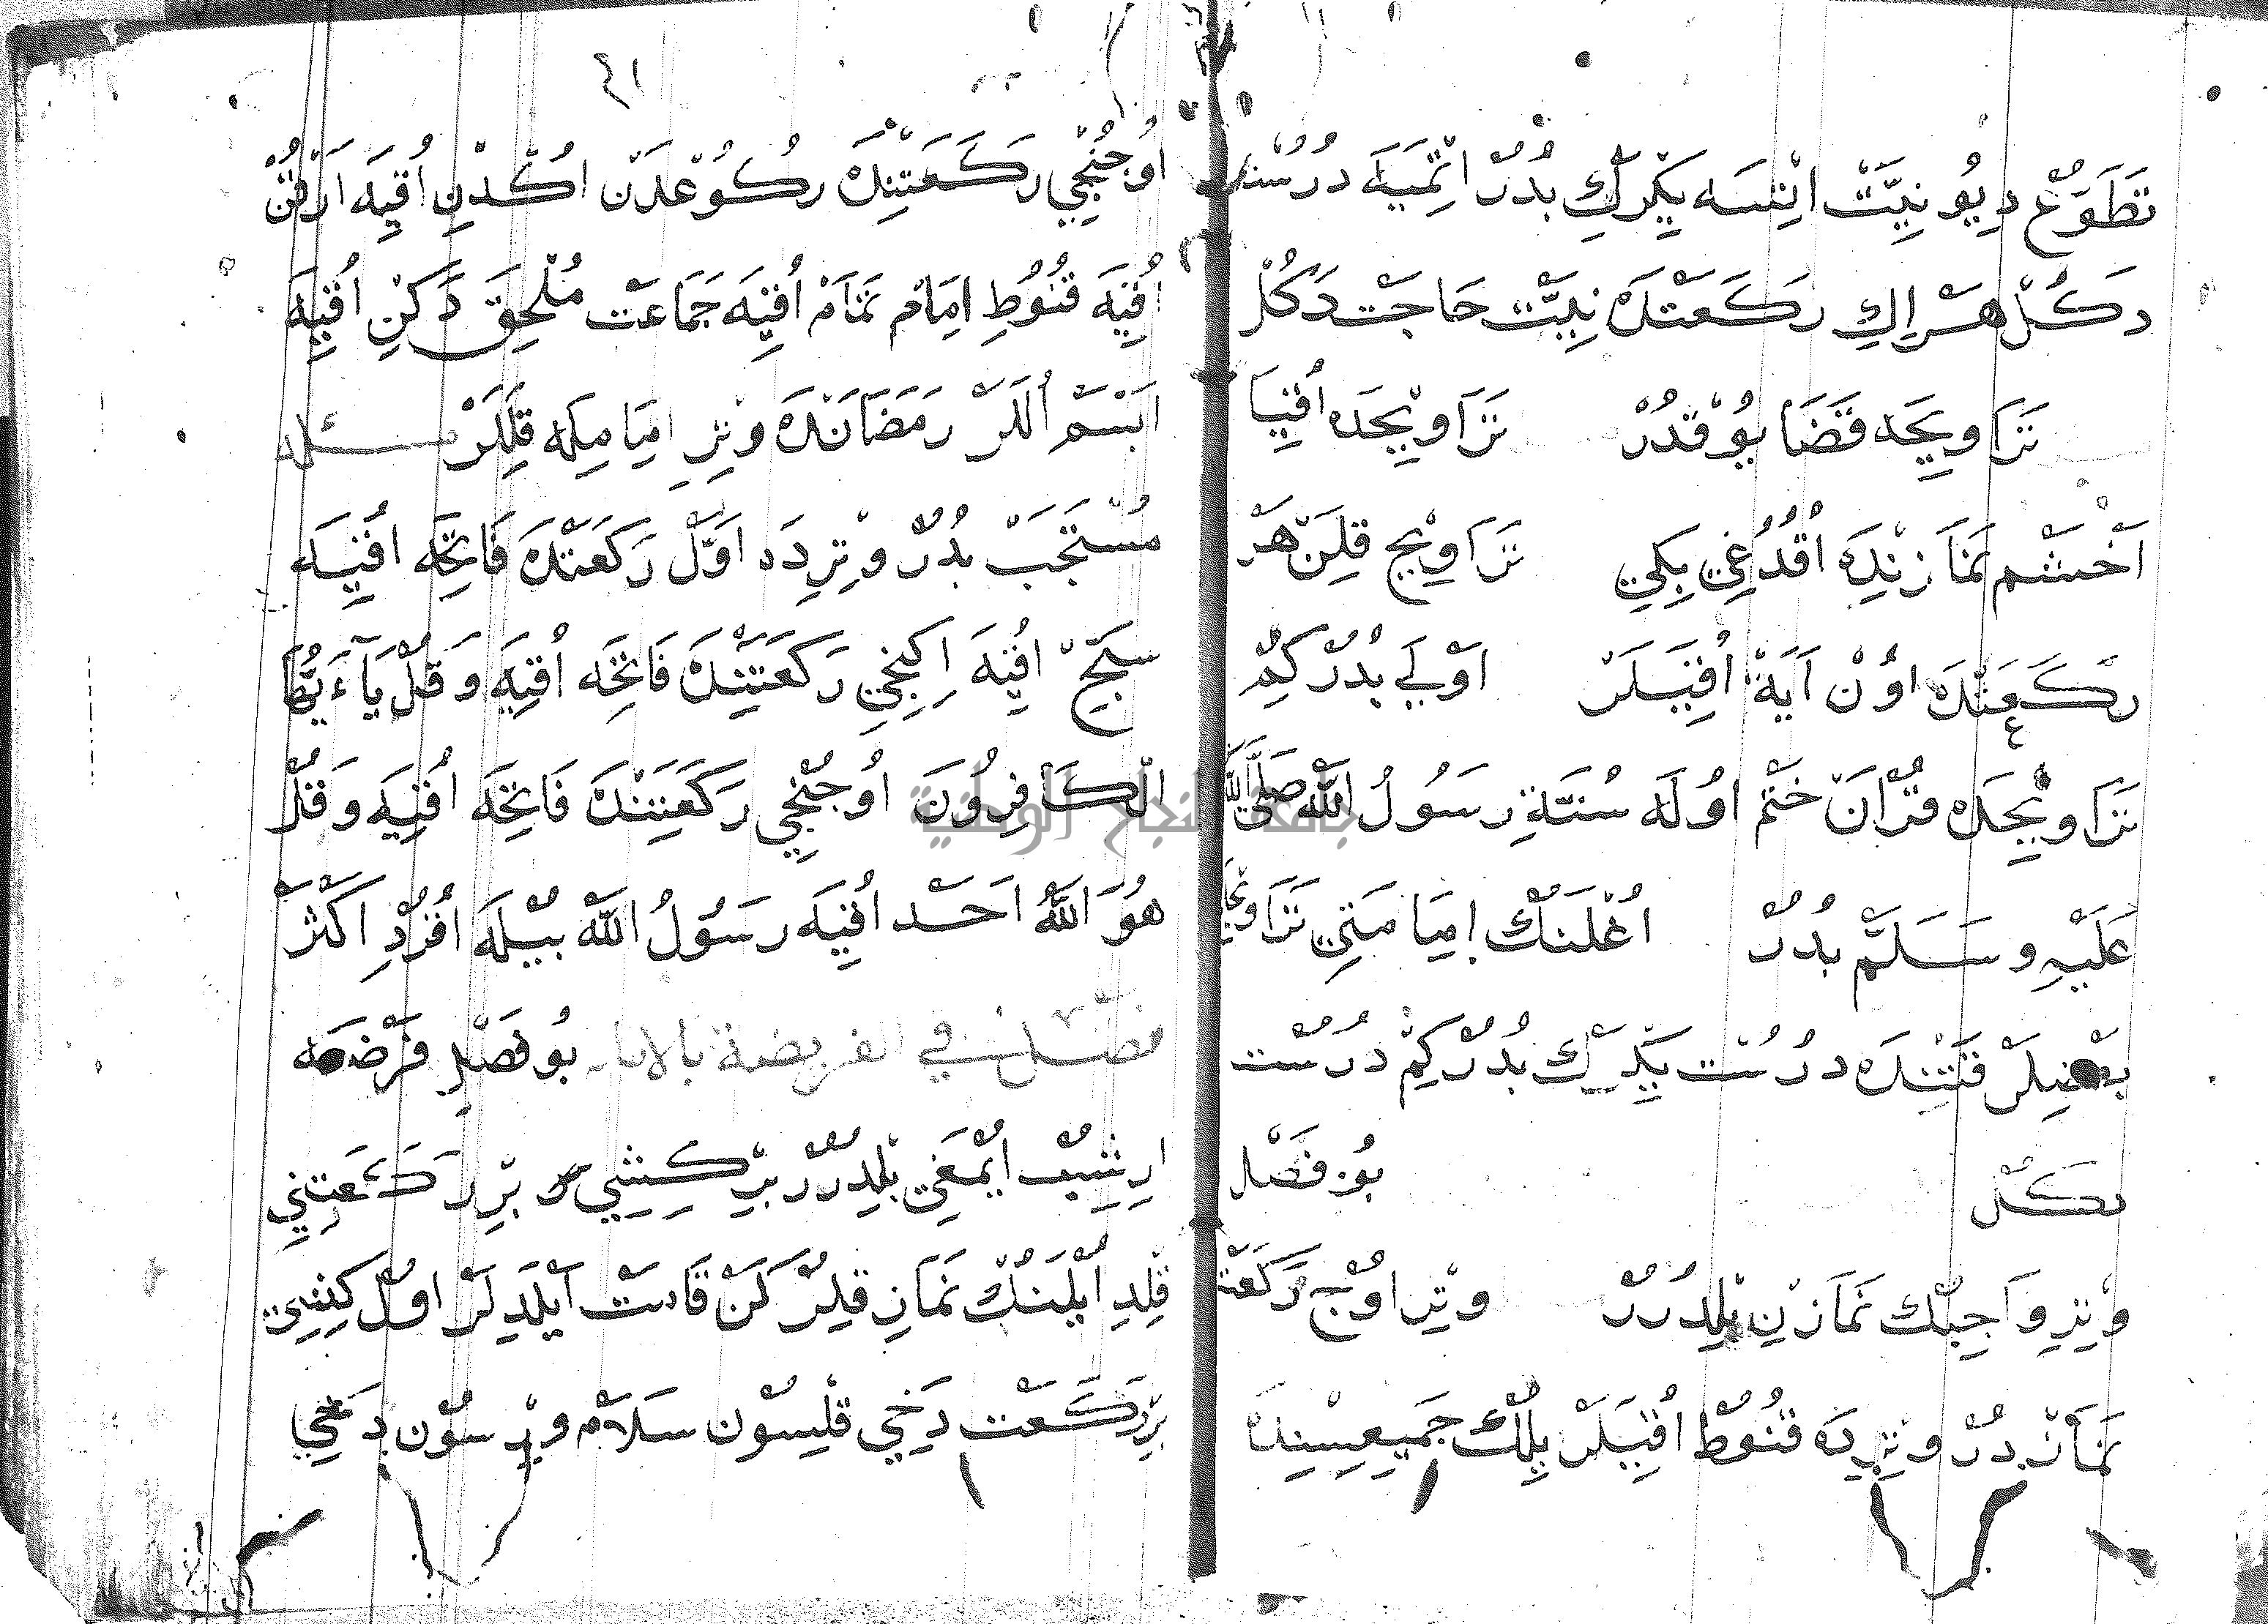 تَطَوُّعْ دِيُو نِيَّتْ اتِسَه يَكْرَكِ بُدُرْ اتْمَيَه دُرُسْت
دَكُلْ هَرْ اِكِ رَكَعَتْدَه نِيَّتْ حَاجَتْ دَكُلْ
تَرَاوِيحَه قَضَا يُوقْدُرْ تَرَاوِيحْدَه اُقِيَا
اَخْشَمْ نَمَازِنْدَه اُقُدُغِي بِكِي تَرَاوِيحْ قِلَنْ هَرْ
رَكَعَتْدَه اُونْ اَيَةْ اُقِيَلَرْ اَوْلَى بُدُرْ كِمْ
تَرَاوِيحْدَه قُرْآنْ خَتْمْ اُولَه سُنَّةِ رَسُولُ اللّٰه صَلَّى اللّٰه
عَلَيْهِ وَسَلَّمْ بُدُرْ اُغْلَنُكْ اِمَامَتِي تَرَاوِيحْ
بَعْضِلَرْ قَتِنْدَه دُرُسْت بُدُرْ كِمْ دُرُسْت
دَكُلْ بُو فَصْل
وِتْرِ وَاجِبْنُكْ نَمَازِنِ بِلْدِرُرْ وِتِر اُوچْ رَكَعَتْ
نَمَازْدُرْ وِتِرِدَه قُنُوطْ اُقِيَلَرْ يِلُكْ جَمِيعِسِنْدَه
٤١
اُوجُنْجِي رَكَعَتِنْدَه رُكُوعْدَنْ اُكْدِنْ اُقِيَه
اُقِيَه قُنُوطِ اِمَامْ تَمَامْ اُقِيَه جَمَاعَتْ مُلْحِقَ دَكِنْ اُقِيَه
ابْسَمْ اُلَلَرْ رَمَضَانْدَه وِتِرِ اِمَامِيلَه قِلَلَرْ مسئله
مُسْتَحَبْ بُدُرْ وِتِرِدَه اَوَّلْ رَكَعَتْدَه فَاتِحَه اُقِيَه
سَبِّحْ اُقِيَه اِكِنْجِي رَكَعَتِنْدَه فَاتِحَه اُقِيَه وَ قُلْ يَآ اَيُّهَا
الْكَافِرُونَ اُوجُنْجِي رَكَعَتِنْدَه فَاتِحَه اُقِيَه وَ قُلْ
هُوَ اللّٰهُ اَحَدْ اُقِيَه رَسُولُ اللّٰه بُيْلَه اُقُرْدِ اَكْثَرْ
فصل في الفريضة بُو فَصْلِ فَرْضَه
ارِشُبْ ايْمَغِي بِلْدِرُرْ بِرْ كِشِي بِرْ رَكَعَتِنِي
قِلْدِ اُيْلَنُكْ نَمَازِ قِلُرْكَنْ قَامَتْ اَيْلَدِلَرْ اُولْ كِشِي
بِرْ رَكَعَتْ دَخِي قِلْسُونْ سَلَامْ وِرْسُونْ دَخِي
جامعة النجاح الوطنية